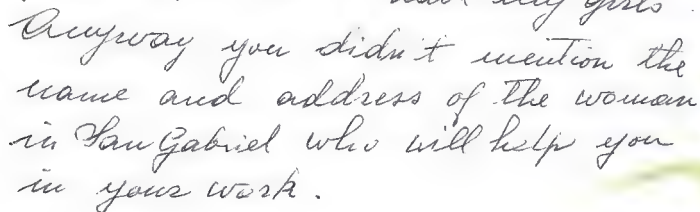 my girls.
Anyway you didn't mention the
name and address of the woman
in San Gabriel who will help you
in your work.